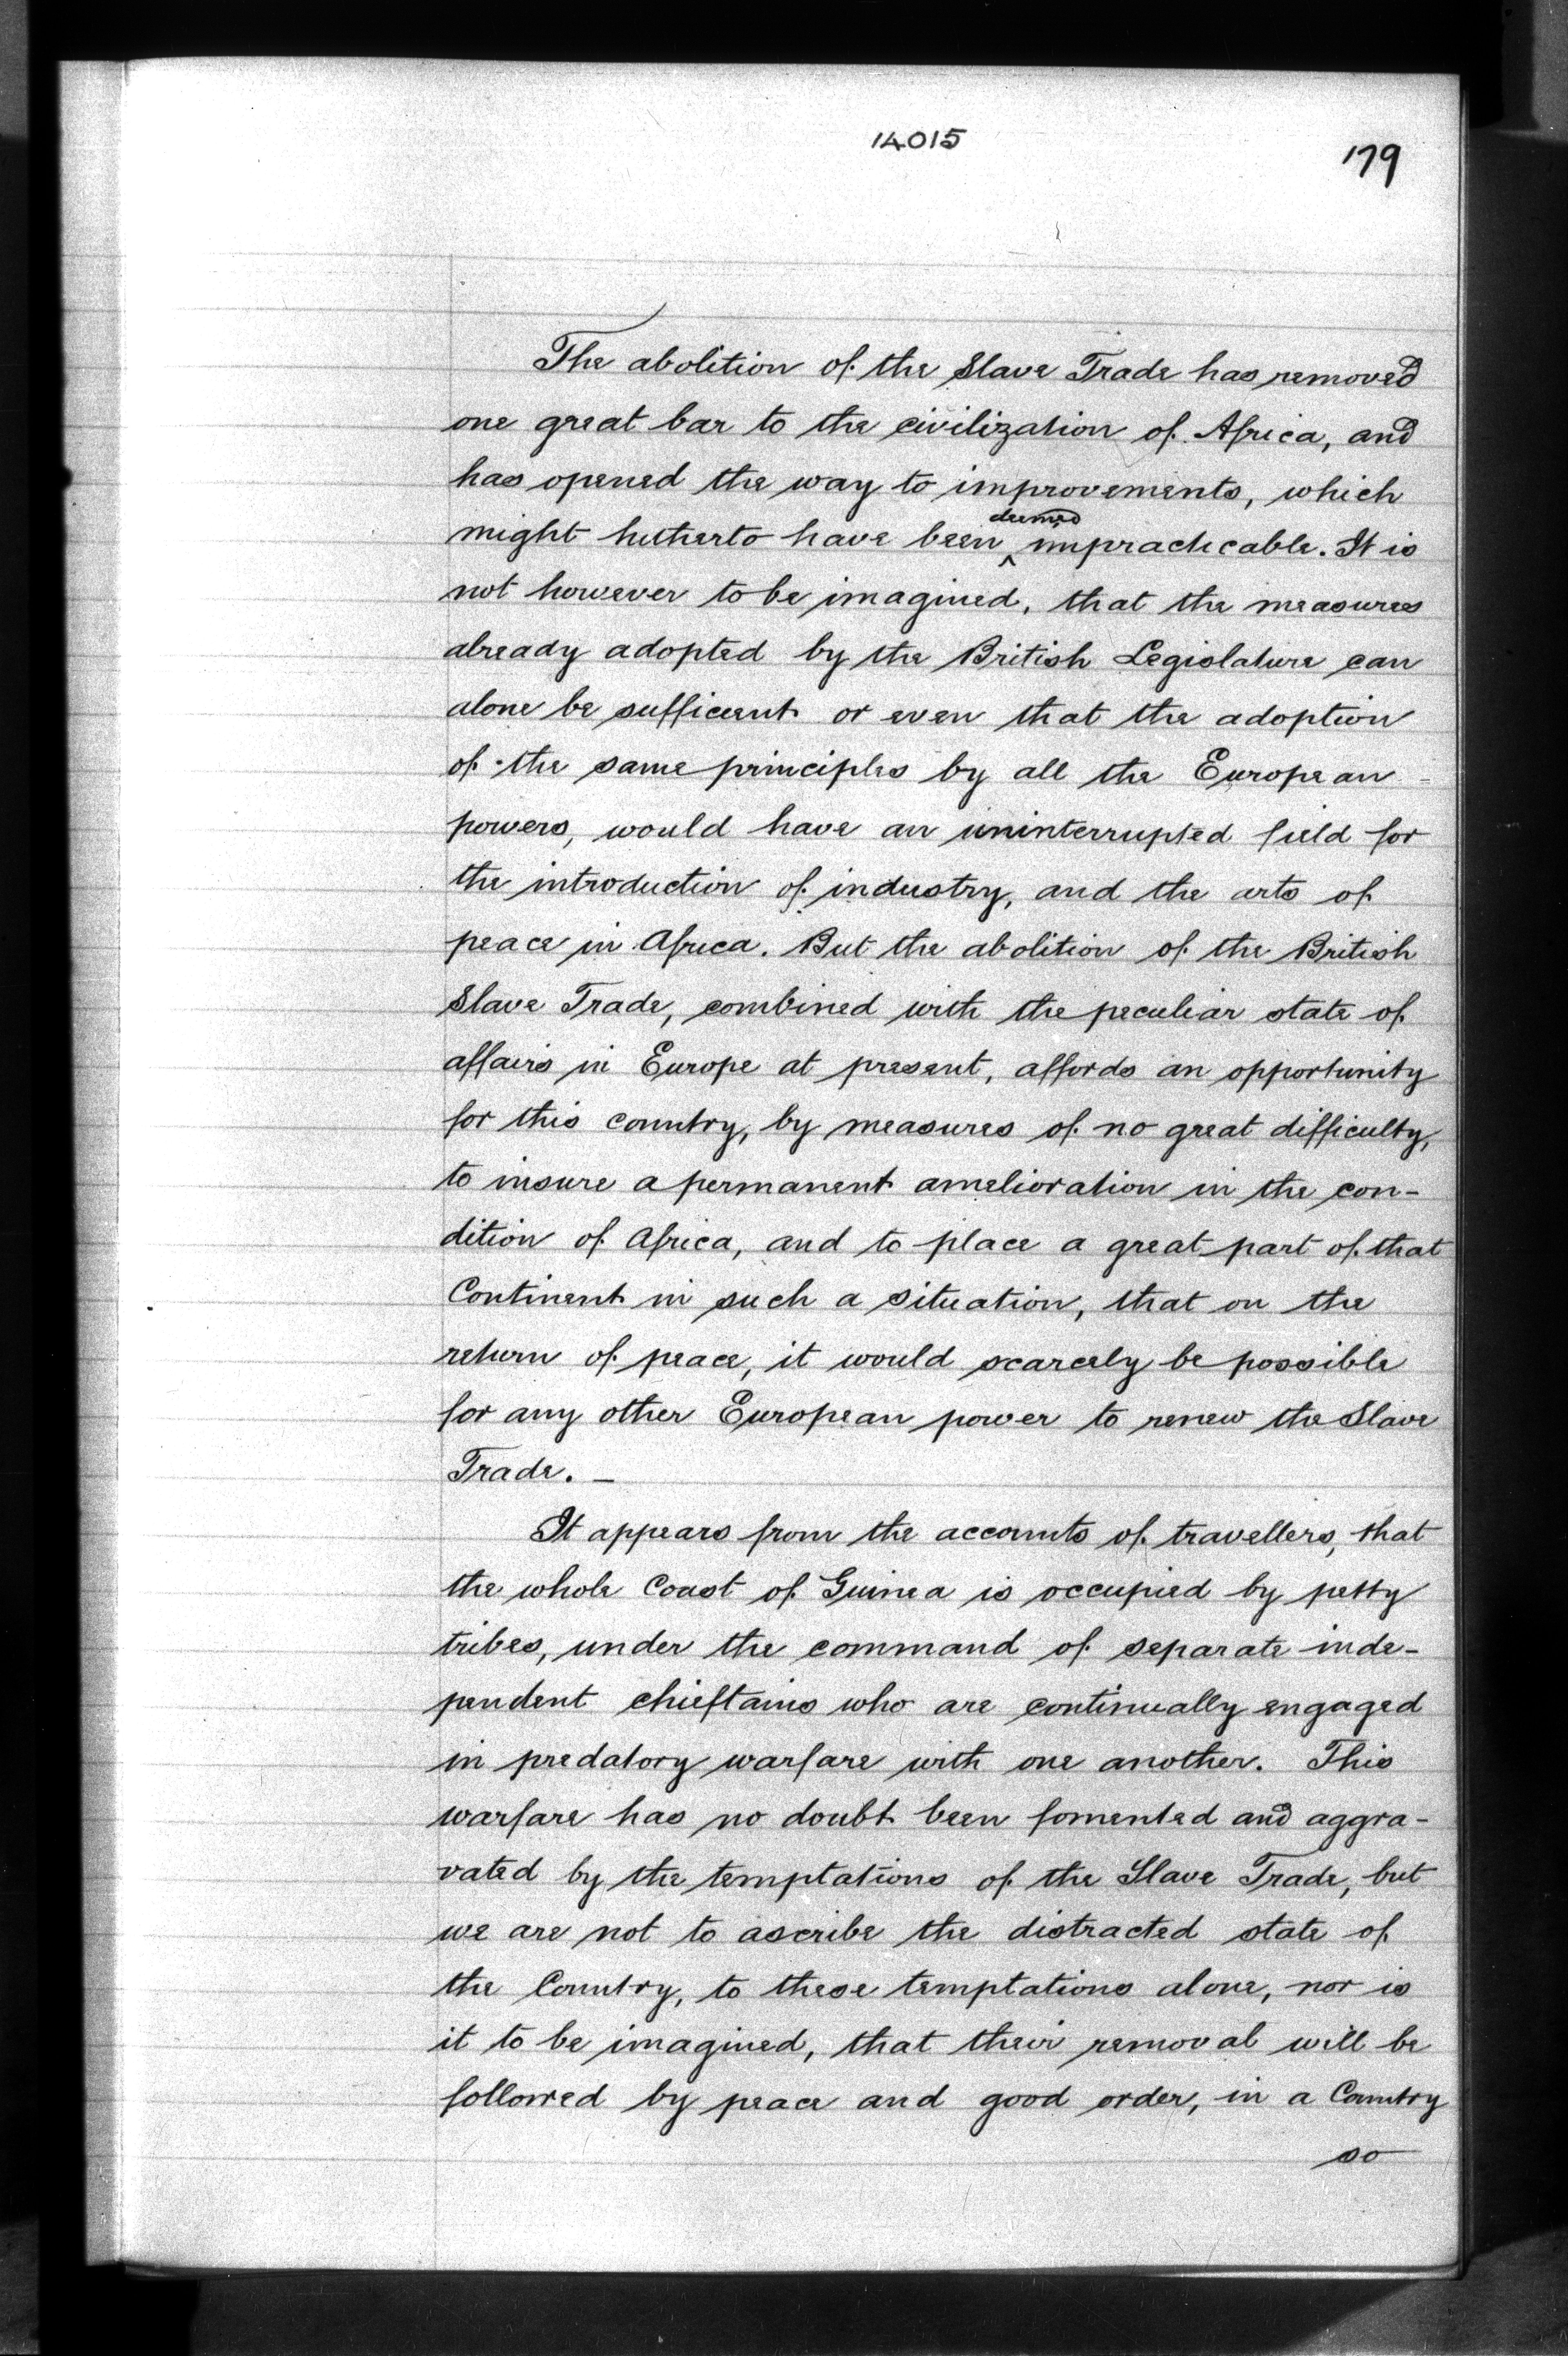 14015
179
The abolition of the Slave Trade has removed
one great bar to the civilization of Africa, and
has opened the way to improvements, which
deemed
might hitherto have been ‸ impracticable. It is
not however to be imagined, that the measures
already adopted by the British Legislature can
alone be sufficient or even that the adoption
of the same principles by all the European
powers, would have an uninterrupted field for
the introduction of industry, and the arts of
peace in Africa. But the abolition of the British
Slave Trade, combined with the peculiar state of
affairs in Europe at present, affords an opportunity
for this country, by measures of no great difficulty,
to insure a permanent amelioration in the con-
dition of Africa, and to place a great part of that
Continent in such a situation, that on the
return of peace, it would scarcely be possible
for any other European power to renew the Slave
Trade. —
It appears from the accounts of travellers, that
the whole Coast of Guinea is occupied by petty
tribes, under the command of separate inde-
pendent chieftains who are continually engaged
in predatory warfare with one another. This
warfare has no doubt been fomented and aggra-
vated by the temptations of the Slave Trade, but
we are not to ascribe the distracted state of
the Country, to these temptations alone, nor is
it to be imagined, that their removal will be
followed by peace and good order, in a Country
so